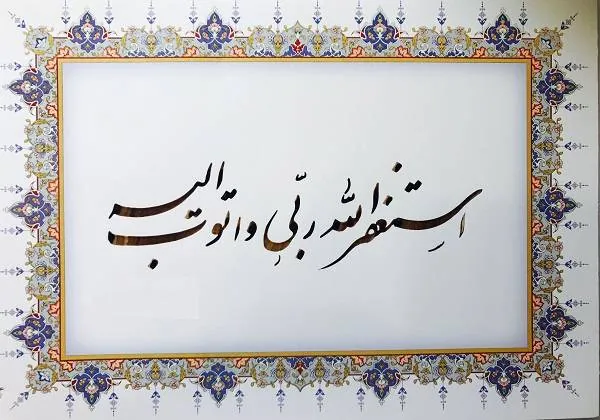 استغفر الله ربّی و اتوب الیه